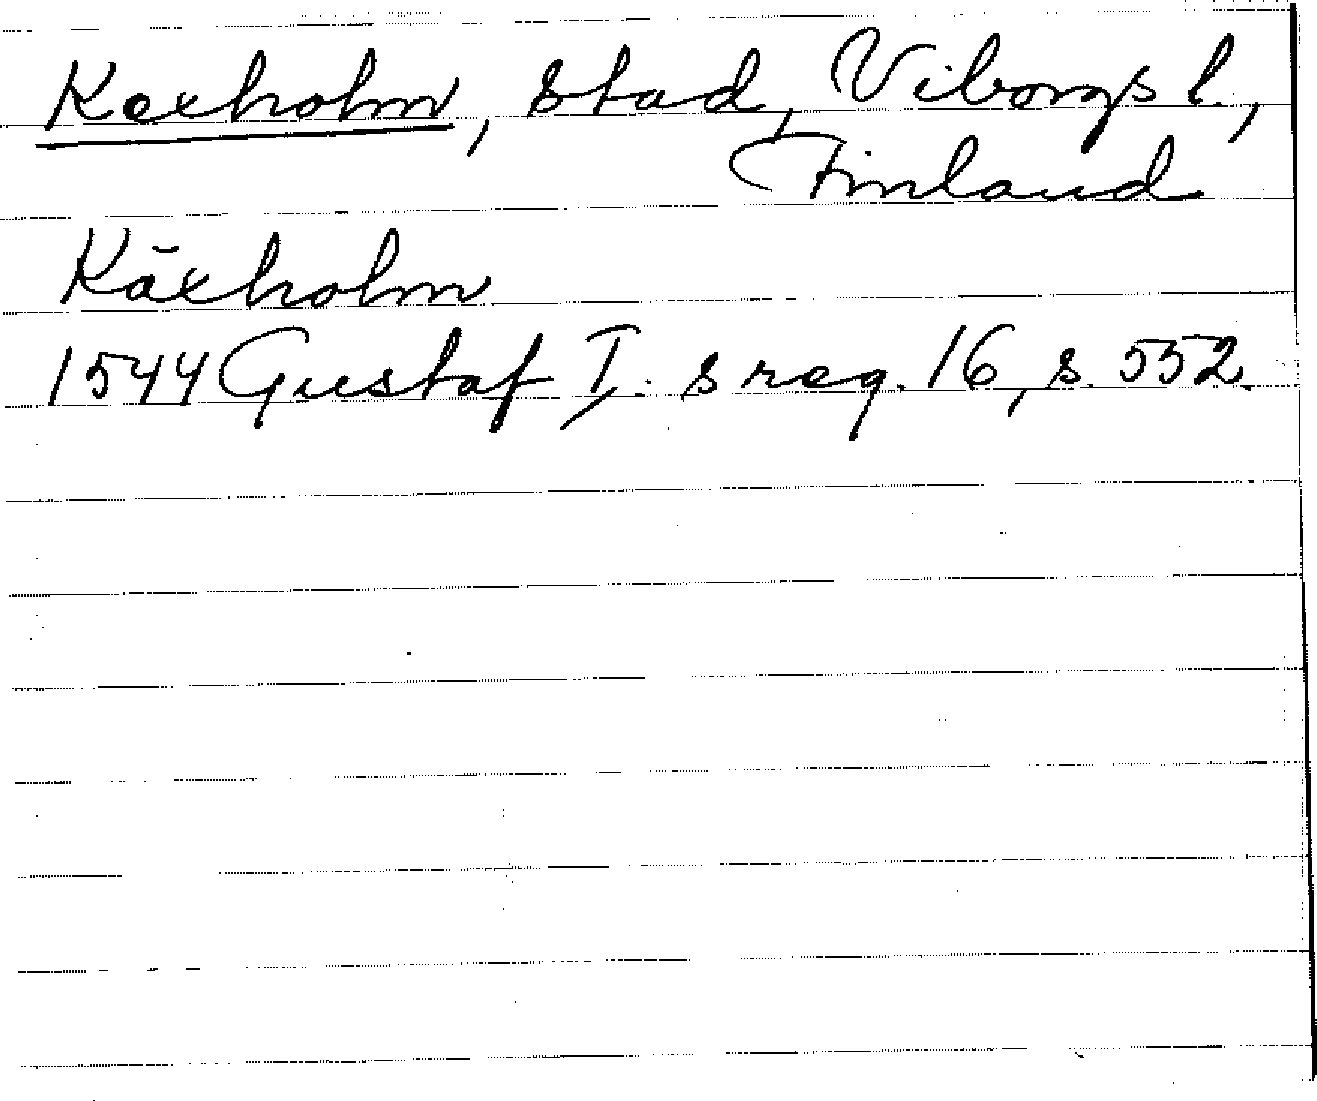 Kexholm, stad, Viborgs l.,
Finland
Käxholm
1544 Gustaf I:s reg. 16, s. 552.